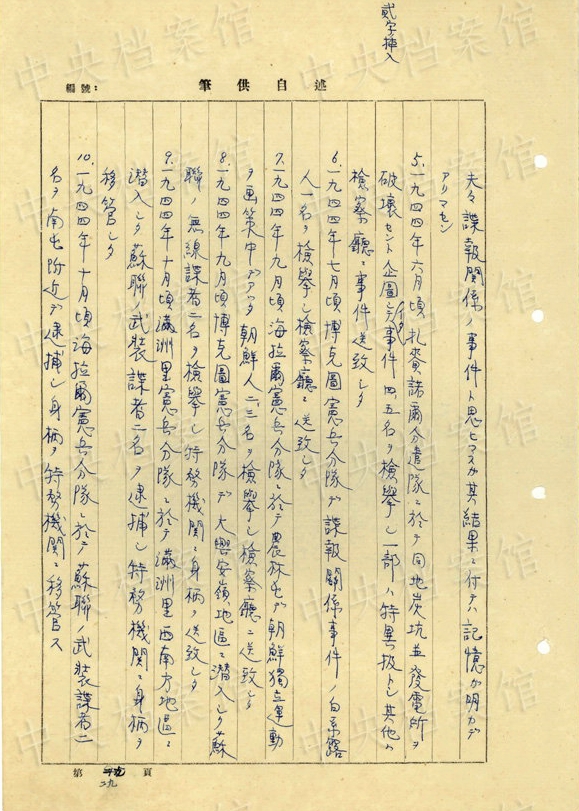 貳字挿入
筆供自述
編號：
夫々諜報関係ノ事件ト思ヒマスガ其結果ニ付テハ記憶ガ明カデ
アリマセン
5.一九四四年六月頃扎賚諾爾分遣隊ニ於テ同地炭坑並發電所ヲ
破壊セント企圖シイタ事件 四、五名ヲ檢擧シ一部ハ特異扱トシ其他ハ
檢察廳ニ事件送致シタ
6.一九四四年七月頃博克圖憲兵分隊デ諜報関係事件ノ白系露
人一名ヲ檢擧シ檢察廳ニ送致シタ
7.一九四四年九月頃海拉爾憲兵分隊ニ於テ農林屯デ朝鮮獨立運動
ヲ画策中デアッタ朝鮮人二、三名ヲ檢擧シ檢察廳ニ送致シタ
8.一九四四年九月頃博克圖憲兵分隊デ大興安嶺地區ニ潜入シタ蘇
聯ノ無線諜者二名ヲ檢擧シ特務機関ニ身柄ヲ送致シタ
9.一九四四年十月頃滿洲里憲兵分隊ニ於テ滿洲里西南方地區ニ
潜入シタ蘇聯ノ武装諜者二名ヲ逮捕シ特務機関ニ身柄ヲ
移管シタ
10.一九四四年十月頃海拉爾憲兵分隊ニ於テ蘇聯ノ武装諜者二
名ヲ南屯附近デ逮捕シ身柄ヲ特務機関ニ移管ス
第 二九 頁
中央档案馆